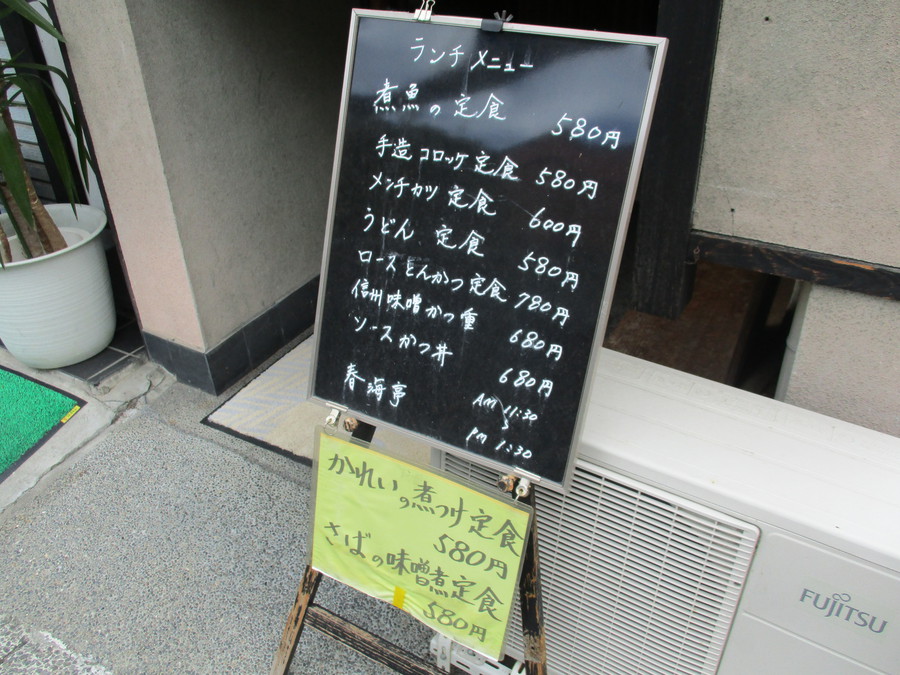 ランチメニュー
煮魚の定食 580円
手造コロッケ定食 580円
メンチカツ定食 600円
うどん 定食 580円
ロースとんかつ定食 780円
信州味噌かつ重 680円
ソースかつ丼 680円
春海亭 AM 11:30
〜
PM 1:30
かれいの煮つけ定食
580円
さばの味噌煮定食
580円
FUJITSU